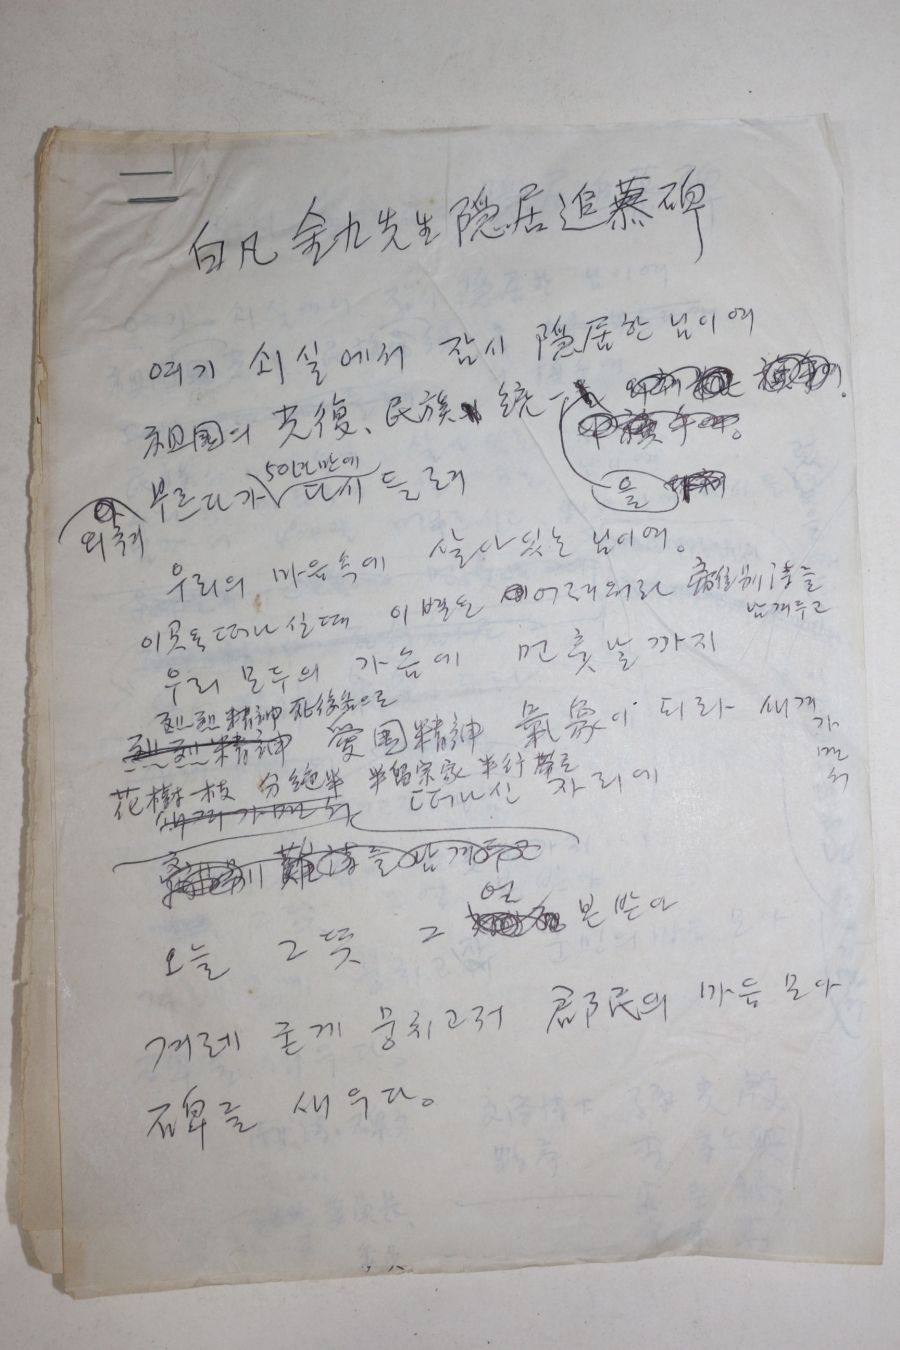 白凡 金九先生 隱居追慕碑
여기 쇠실에서 잠시 隱居한 님이여
祖國의 光復、民族 統一
을
외추기
부르다가 50년만에 다시 들려
우리의 마음속에 살아있는 님이여。
이곳을 떠나실때 이별은 어려워라 離別難詩를
남겨두고
우리 모두의 가슴에 먼 훗날까지
烈烈精神 死後名으로
烈烈精神 愛国精神 氣象이 되라 새겨
가면서
花樹一枝 分絶半 半留宗家 半行帶로
떠나신 자리에
難詩를 남겨두고
오늘 그 뜻 그 얼 본받아
겨레 굳게 뭉치고저 郡民의 마음 모아
碑를 세우다。